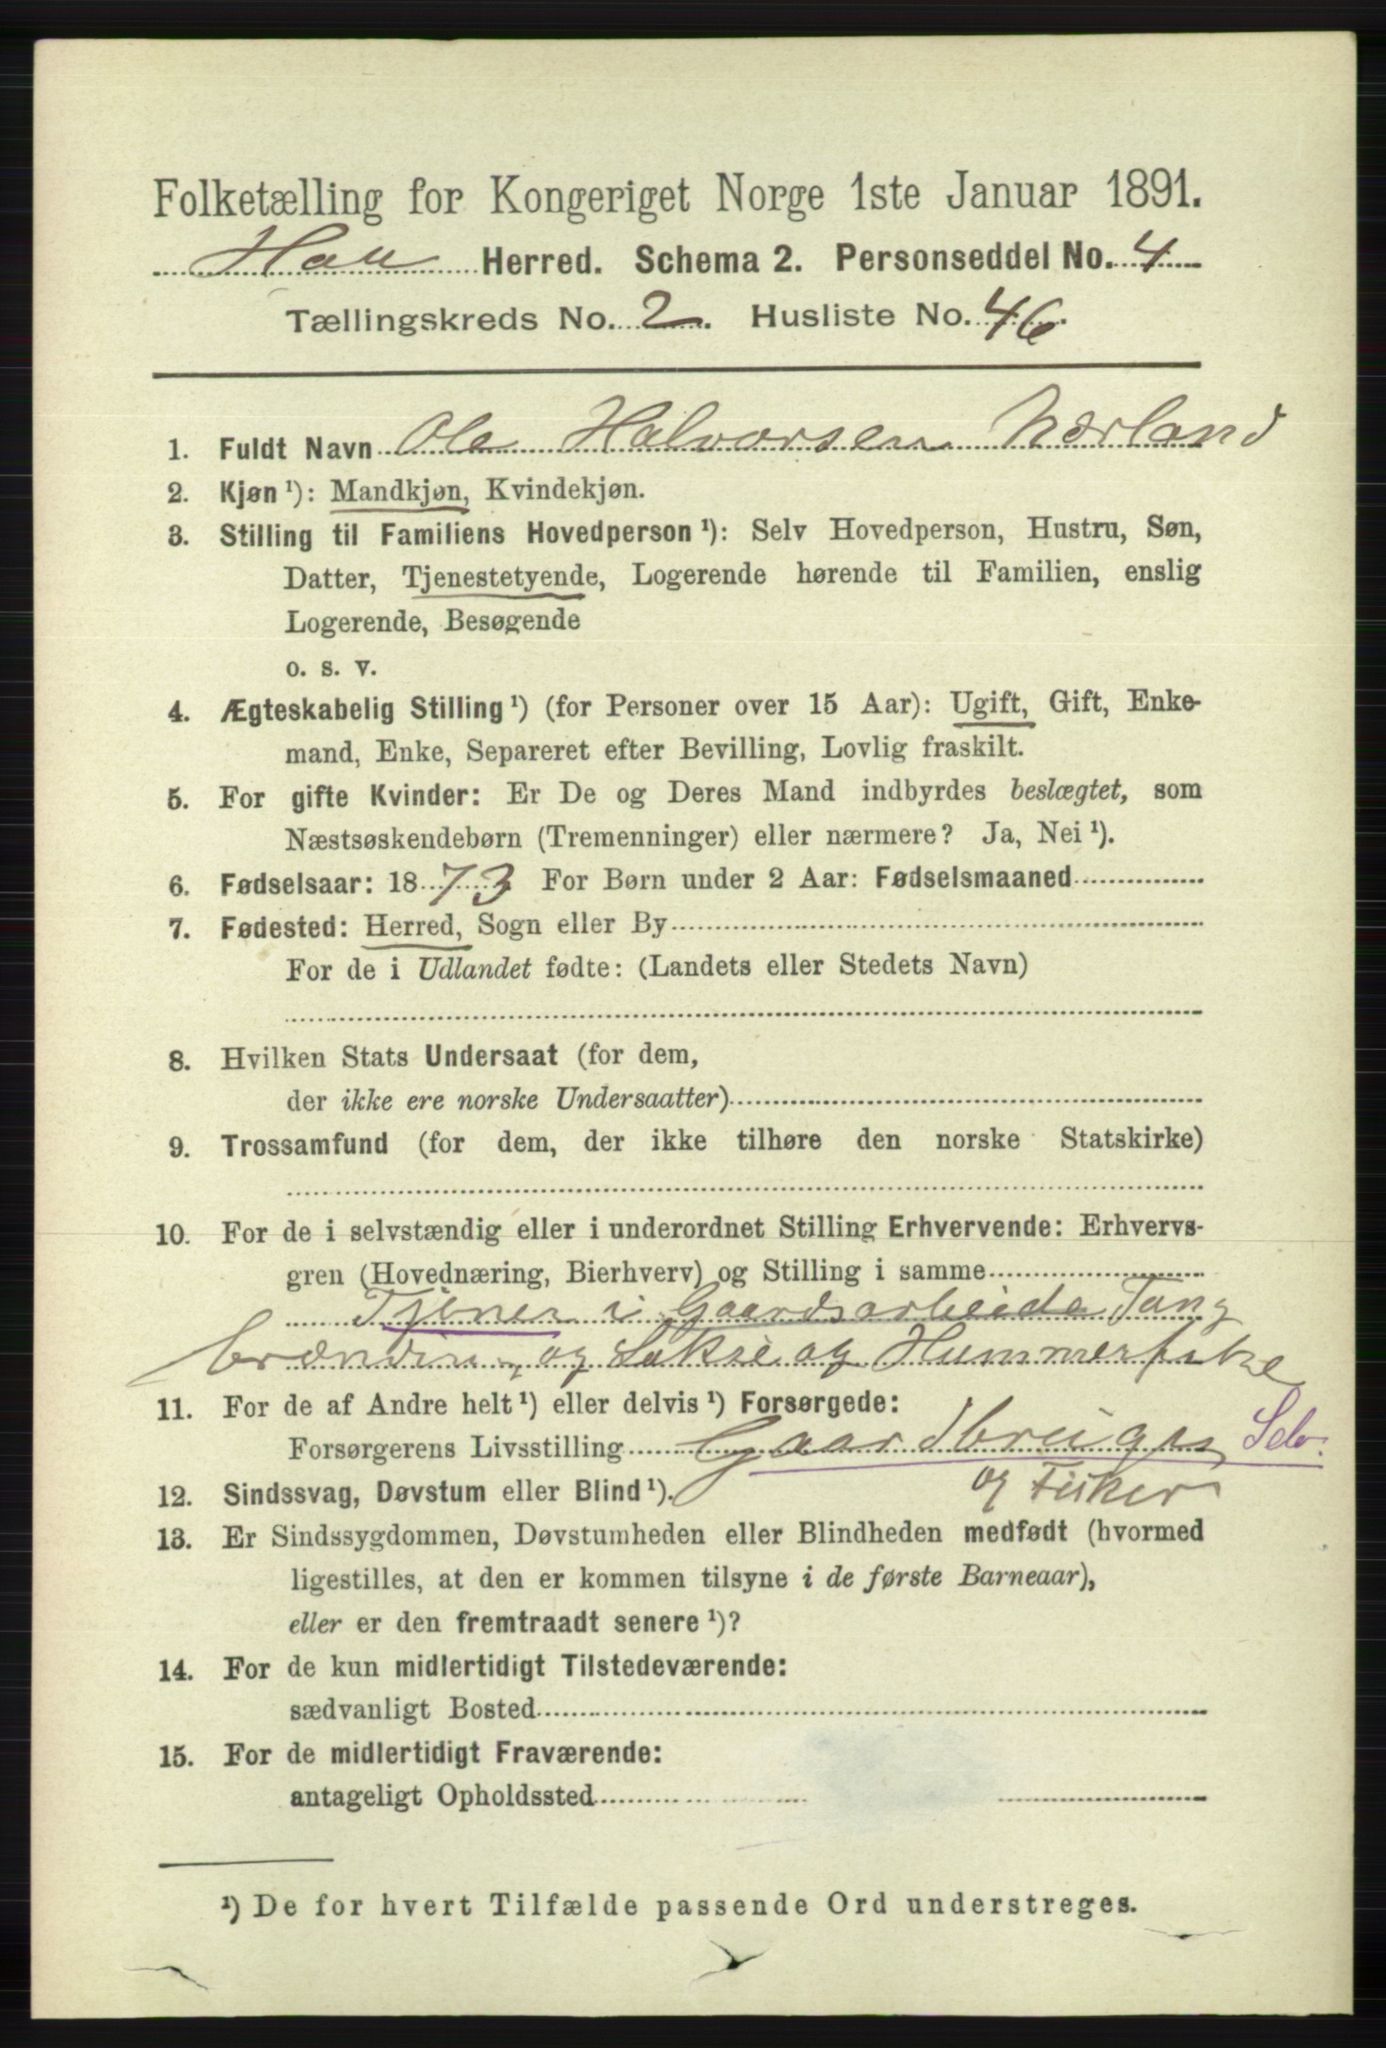 Folketælling for Kongeriget Norge 1ste Januar 1891.
Haa Herred. Schema 2. Personseddel No. 4
Tællingskreds No. 2. Husliste No. 46.
1. Fuldt Navn Ole Halvorsen Nærland
2. Kjøn ¹): Mandkjøn, Kvindekjøn.
3. Stilling til Familiens Hovedperson ¹): Selv Hovedperson, Hustru, Søn,
Datter, Tjenestetyende, Logerende hørende til Familien, enslig
Logerende, Besøgende
o. s. v.
4. Ægteskabelig Stilling ¹) (for Personer over 15 Aar): Ugift, Gift, Enke-
mand, Enke, Separeret efter Bevilling, Lovlig fraskilt.
5. For gifte Kvinder: Er De og Deres Mand indbyrdes beslægtet, som
Næstsøskendebørn (Tremenninger) eller nærmere? Ja, Nei ¹).
6. Fødselsaar: 1873 For Børn under 2 Aar: Fødselsmaaned
7. Fødested: Herred, Sogn eller By
For de i Udlandet fødte: (Landets eller Stedets Navn)
8. Hvilken Stats Undersaat (for dem,
der ikke ere norske Undersaatter)
9. Trossamfund (for dem, der ikke tilhøre den norske Statskirke)
10. For de i selvstændig eller i underordnet Stilling Erhvervende: Erhvervs-
gren (Hovednæring, Bierhverv) og Stilling i samme
Tjener i Gaardsarbeide Tang
og Lakse og Hummerfiske
11. For de af Andre helt ¹) eller delvis ¹) Forsørgede:
Forsørgerens Livsstilling Gaardbruger Selv.
og Fisker
12. Sindssvag, Døvstum eller Blind ¹).
13. Er Sindssygdommen, Døvstumheden eller Blindheden medfødt (hvormed
ligestilles, at den er kommen tilsyne i de første Barneaar),
eller er den fremtraadt senere ¹)?
14. For de kun midlertidigt Tilstedeværende:
sædvanligt Bosted
15. For de midlertidigt Fraværende:
antageligt Opholdssted
¹) De for hvert Tilfælde passende Ord understreges.